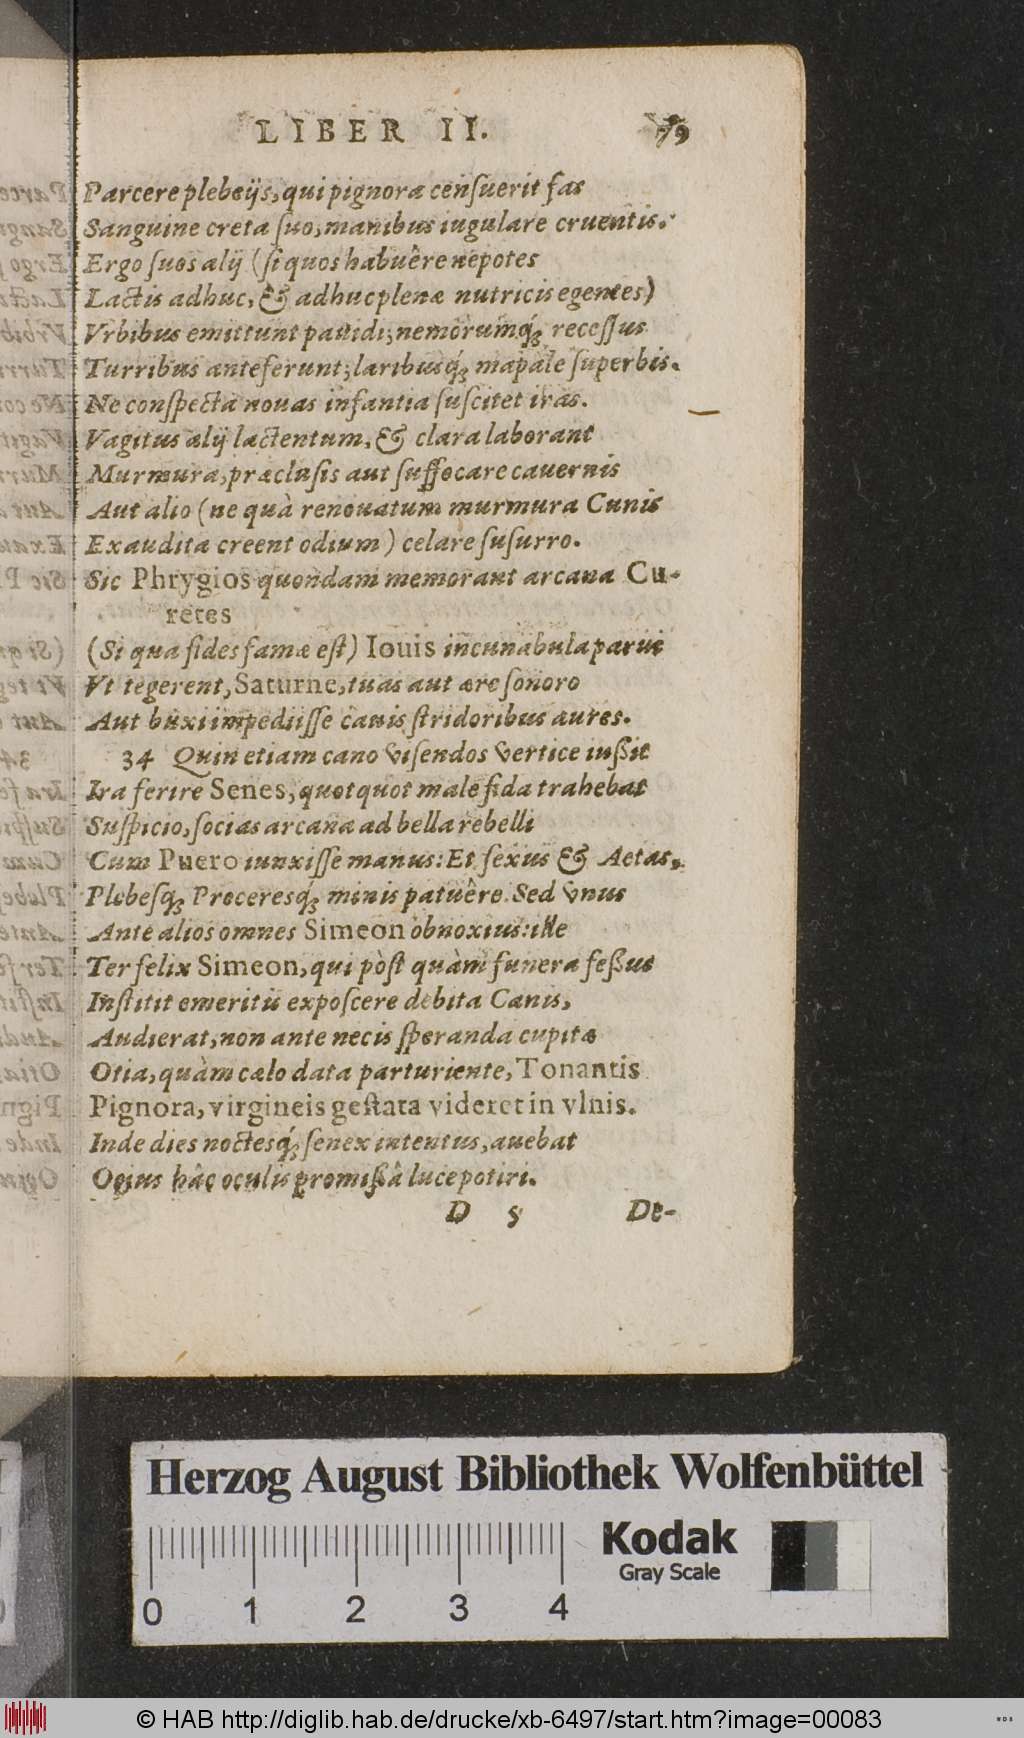 LIBER II. 79
Parcere plebeijs, qui pignora censuerit fas
Sanguine creta suo, manibus iugulare cruentis.
Ergo suos alij (si quos habuêre nepotes
Lactis adhuc, & adhuc plenæ nutricis egentes)
Vrbibus emittunt pauidi; nemorumq́; recessus
Turribus anteferunt; laribusq́; mapale superbis.
Ne conspecta nouas infantia suscitet iras.
Vagitus alij lactentum, & clara laborant
Murmura, præclusis aut suffocare cauernis
Aut alio (ne quà renouatum murmura Cunis
Exaudita creent odium) celare susurro.
Sic Phrygios quondam memorant arcana Cu-
retes
(Si qua fides famæ est) Iouis incunabula parui
Vt tegerent, Saturne, tuas aut ære sonoro
Aut buxi impediisse cauis stridoribus aures.
34 Quin etiam cano visendos vertice iußit
Ira ferire Senes, quotquot male fida trahebat
Suspicio, socias arcana ad bella rebelli
Cum Puero iunxisse manus: Et sexus & Aetas,
Plebesq́; Proceresq́; minis patuêre. Sed vnus
Ante alios omnes Simeon obnoxius: ille
Ter felix Simeon, qui pòst quàm funera feßus
Institit emeritis exposcere debita Canis,
Audierat, non ante necis speranda cupitæ
Otia, quàm cælo data parturiente, Tonantis
Pignora, virgineis gestata videret in vlnis.
Inde dies noctesq́; senex intentus, auebat
Ocius hâc oculis promißâ luce potiri.
D 5 De-
Herzog August Bibliothek Wolfenbüttel
Kodak
Gray Scale
0 1 2 3 4
© HAB http://diglib.hab.de/drucke/xb-6497/start.htm?image=00083